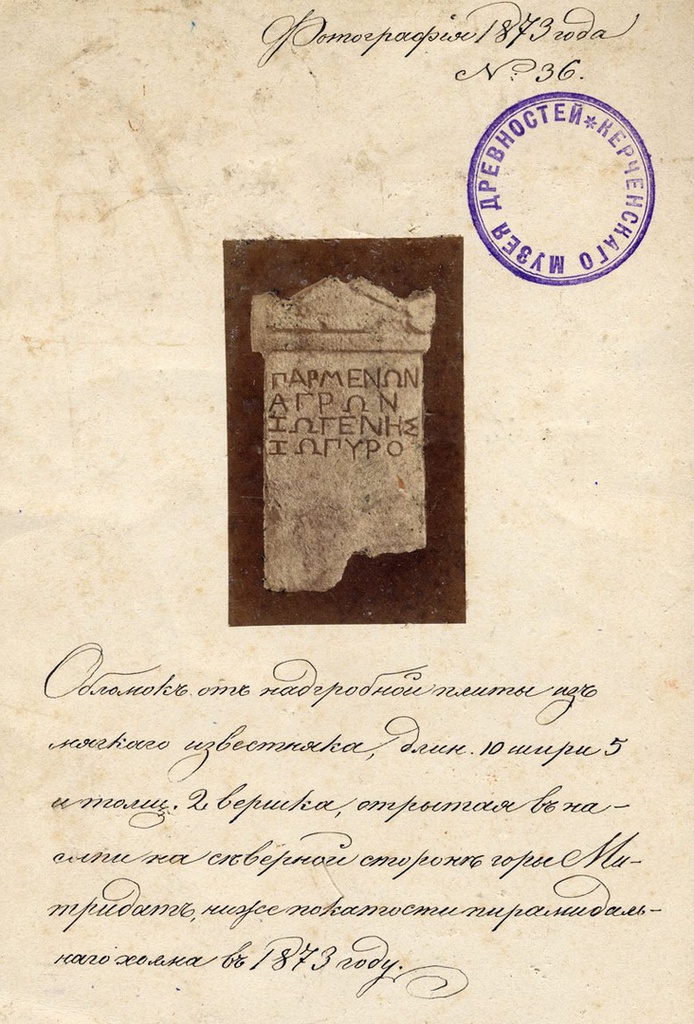 Фотографія 1873 года
№ 36.
КЕРЧЕНСКАГО МУЗЕЯ ДРЕВНОСТЕЙ *
ΠΑΡΜΕΝΩΝ
ΑΓΡΩΝ
ΙΩΓΕΝΗΣ
ΙΩΠΥΡΟ
Обломокъ отъ надгробной плиты изъ
мягкаго известняка, длин. 10 шири 5
и толщ. 2 вершка, отрытая въ на-
сыпи на сѣверной сторонѣ горы Ми-
тридатъ, ниже покатости пирамидаль-
наго холма въ 1873 году.